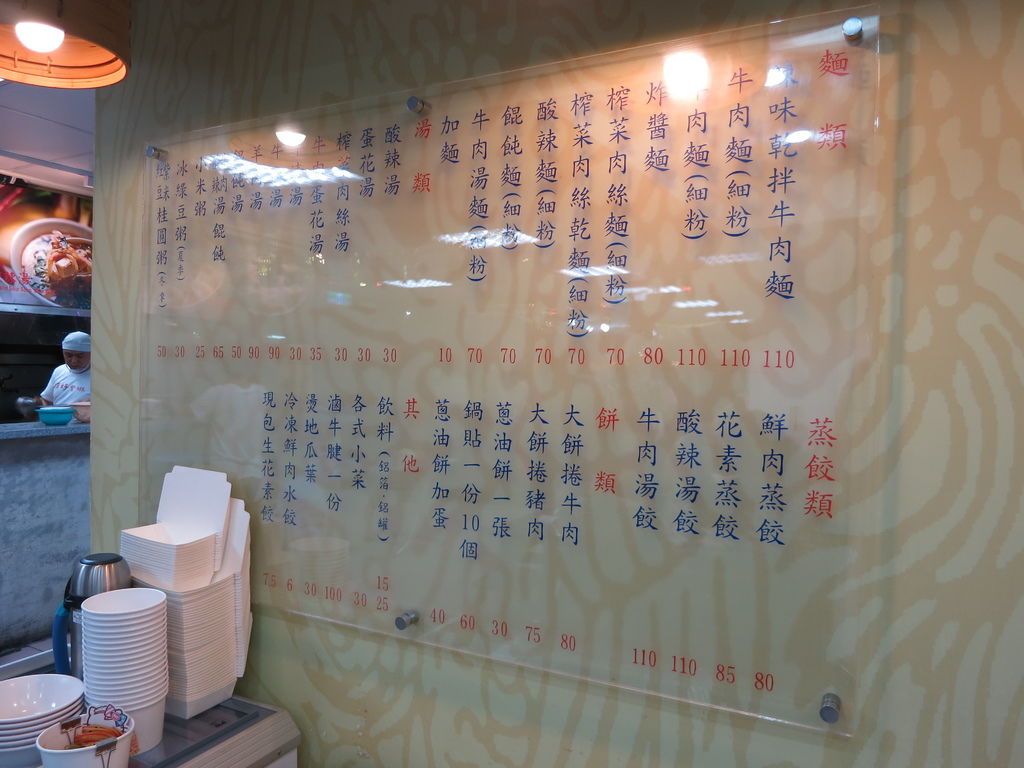 麵類
味乾拌牛肉麵 110
牛肉麵(細粉) 110
肉麵(細粉) 110
炸醬麵 80
榨菜肉絲麵(細粉) 70
榨菜肉絲乾麵(細粉) 70
酸辣麵(細粉) 70
餛飩麵(細粉) 70
牛肉湯麵(細粉) 70
加麵 10
湯類
酸辣湯 30
蛋花湯 30
榨菜肉絲湯 30
牛肉蛋花湯 35
牛湯 30
牛湯 90
羊湯 90
餛飩湯 50
湯餛飩 65
小米粥 25
冰綠豆粥(夏季) 30
豆味桂圓粥(冬季) 50
蒸餃類
鮮肉蒸餃 80
花素蒸餃 85
酸辣湯餃 110
牛肉湯餃 110
餅類
大餅捲牛肉 80
大餅捲豬肉 75
蔥油餅一張 30
鍋貼一份10個 60
蔥油餅加蛋 40
其他
飲料(鋁箔·鋁罐) 15 25
各式小菜 30
滷牛腱一份 100
燙地瓜葉 30
冷凍鮮肉水餃 6
現包生花素餃 7.5